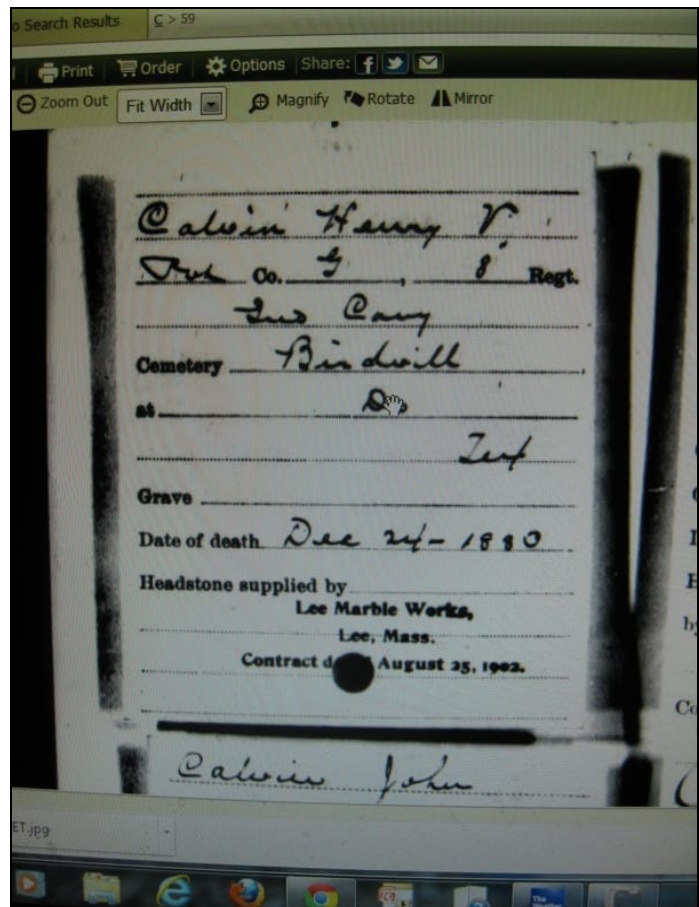 o Search Results C > 59
Print Order Options Share:
Zoom Out Fit Width Magnify Rotate Mirror
Calvin Henry V.
Pvt Co. G, 8 Regt.
Ind Cavy
Cemetery Birdvill
at Do
Tex
Grave
Date of death Dec 24 - 1880
Headstone supplied by
Lee Marble Works,
Lee, Mass.
Contract d August 25, 1902.
Calvin John
ET.jpg